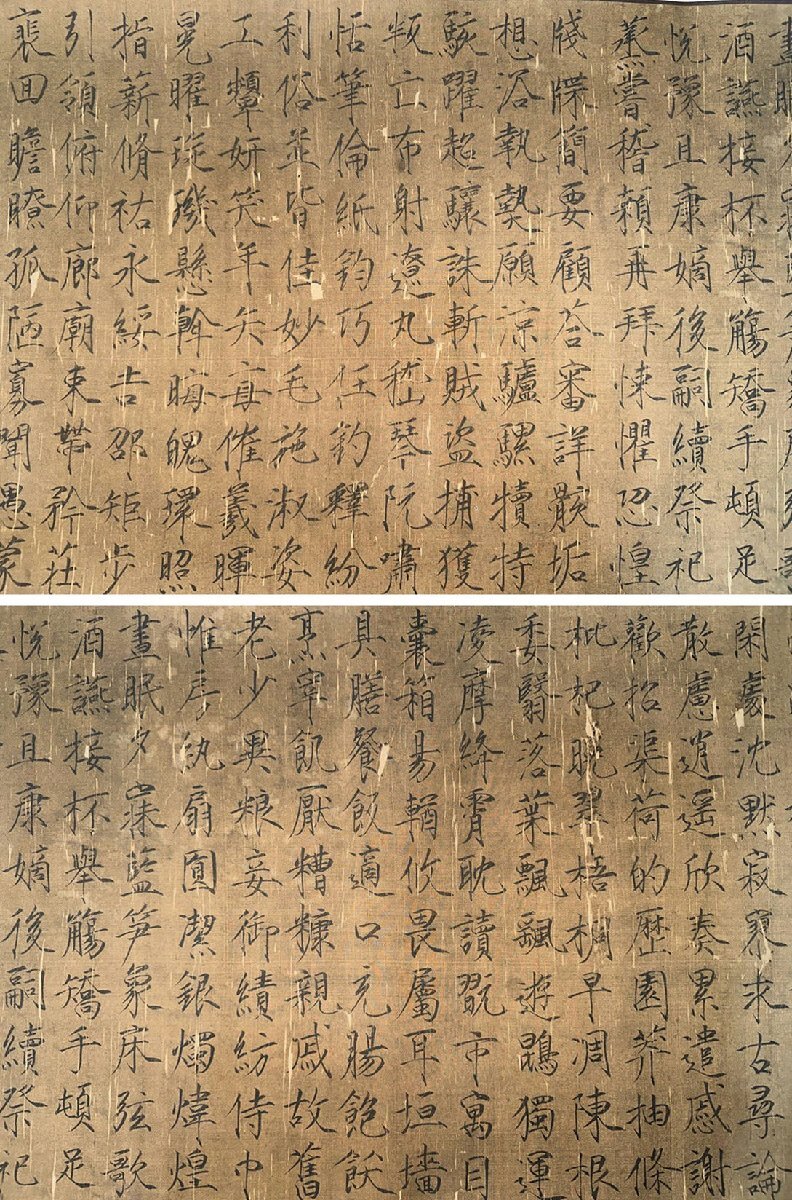 酒讌接杯舉觴矯手頓足
悅豫且康嫡後嗣續祭祀
蒸嘗稽顙再拜悚懼恐惶
牋牒簡要顧答審詳骸垢
想浴執熱願涼驢騾犢特
駭躍超驤誅斬賊盜捕獲
叛亡布射遼丸嵇琴阮嘯
恬筆倫紙鈞巧任釣釋紛
利俗並皆佳妙毛施淑姿
工顰妍笑年矢每催羲暉
晃曜琁璣懸斡晦魄環照
指薪脩祜永綏吉邵矩步
引領俯仰廊廟束帶矜莊
裵回瞻瞭孤陋寡聞愚蒙
閑處沈默寂寥求古尋論
散慮逍遥欣奏累遣慼謝
歡招渠荷的歷園莽抽條
枇杷晚翠梧桐早凋陳根
委翳落葉飄颻遊鵾獨運
凌摩絳霄耽讀翫市寓目
囊箱易輶攸畏屬耳垣墻
具膳餐飯適口充腸飽飫
烹宰飢厭糟糠親戚故舊
老少異粮妾御績紡侍巾
帷房紈扇圓潔銀燭煒煌
晝眠夕寐藍笋象床弦歌
酒讌接杯舉觴矯手頓足
悅豫且康嫡後嗣續祭祀